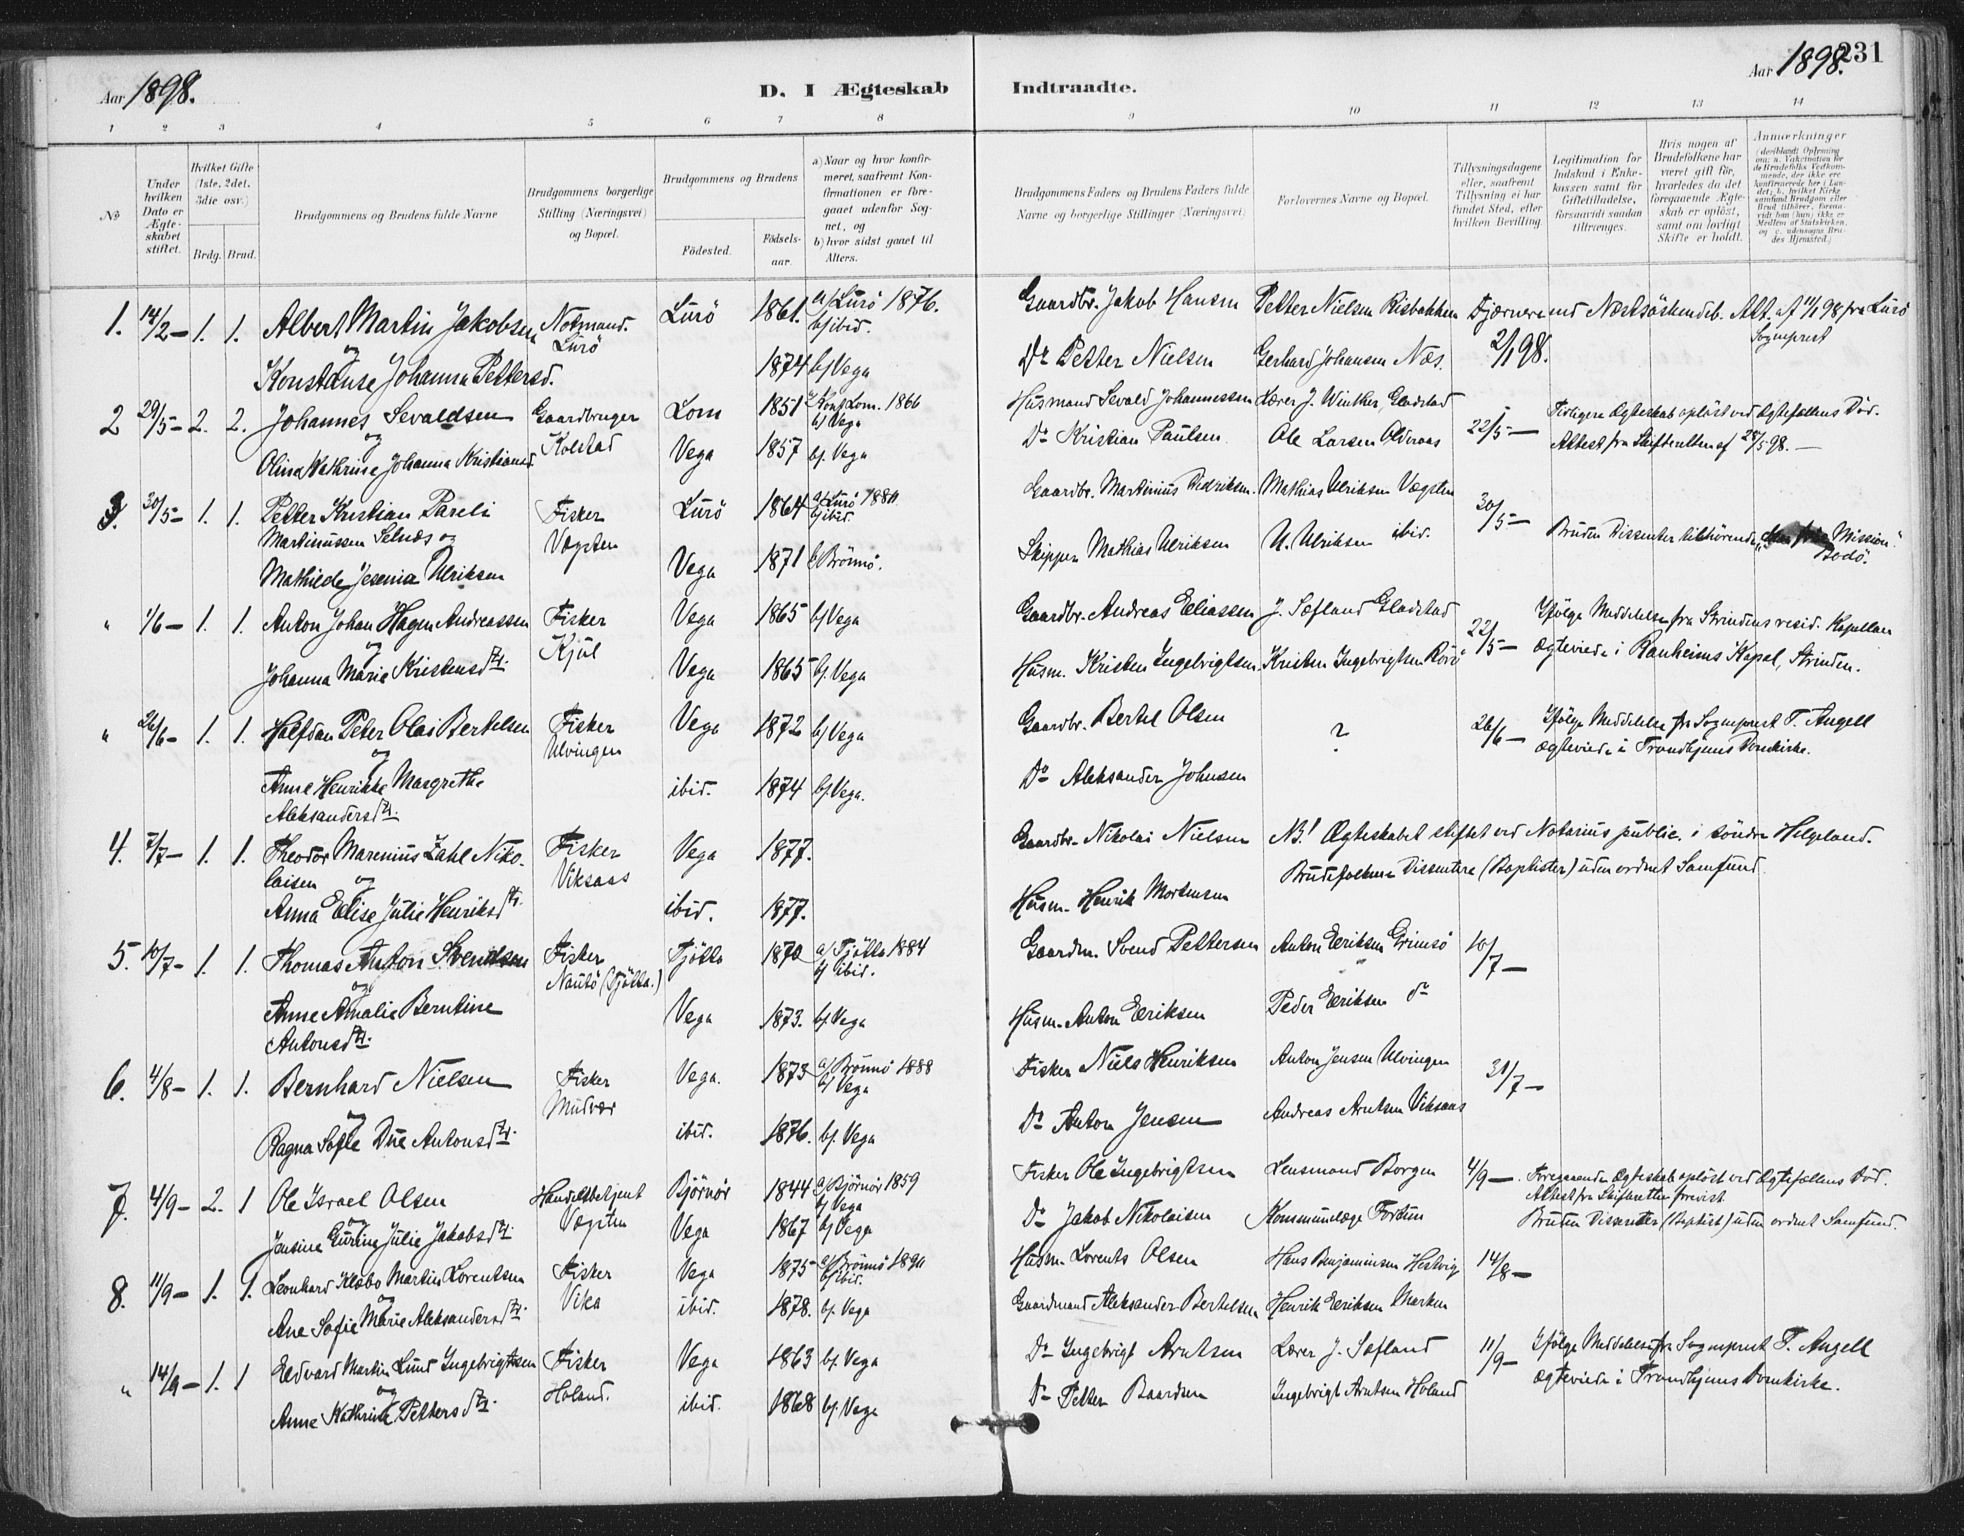 Aar 1898.
D. I Ægteskab Indtraadte.
Aar 1898. 231
1 2 3 4 5 6 7 8 9 10 11 12 13 14
No
Under hvilken Dato er Ægteskabet stiftet.
Hvilket Gifte (1ste, 2det, 3die osv.)
Brdg. Brud.
Brudgommens og Brudens fulde Navne
Brudgommens borgerlige Stilling (Næringsvei) og Bopæl.
Brudgommens og Brudens
Fødested.
Fødselsaar.
a) Naar og hvor konfirmeret, saafremt Konfirmationen er foregaaet udenfor Sognet, og
b) hvor sidst gaaet til Alters.
Brudgommens Faders og Brudens Faders fulde Navne og borgerlige Stillinger (Næringsvei)
Forlovernes Navne og Bopæl.
Tillysningsdagene eller, saafremt Tillysning ei har fundet Sted, efter hvilken Bevilling.
Legitimation for Indskud i Enkekassen samt for Giftetilladelse, forsaavidt saadan tiltrænges.
Hvis nogen af Brudefolkene har været gift før, hvorledes da det foregaaende Ægteskab er opløst, samt om lovligt Skifte er holdt.
Anmerkninger
1. 14/2 – 1. 1. Albert Martin Jakobsen Notmand. Lurö Lurö 1861. a/ Lurö 1876. b/ ibid. Gaardbr. Jakob Hansen Petter Nielsen Risbakken 2/1 98. Næstsöskendeb. Att. af 11/1 98 fra Lurö Sogneprest
og
Konstanse Johanna Pettersd. 1874 b/ Vega Do Petter Nielsen Gerhard Johansen Næs.
2 29/5 – 2. 2. Johannes Sevaldsen Gaardbruger Kolstad Lom 1851 Konf. Lom. 1866 b/ Vega Husmand Sevald Johannessen Lærer J. Winther, Gladstad 22/5 – Tidligere Ægteskab oplöst ved Ægtefællens Död.
og
Olina Kathrine Johanna Kristiansd. Vega 1857 b/ Vega Do Kristian Paulsen Ole Larsen Alderaas Attest fra Skifteretten af 28/5 98. –
3. 30/5 – 1. 1. Petter Kristian Pareli Martinussen Selnæs og Fisker Vægsten Lurö 1864 a/ Lurö 1880. b/ ibid. Gaardbr. Martinius Didriksen. Mathias Ulriksen Vægsten 30/5 –
Mathilde Jesenia Ulriksen Vega 1871 b/ Brönnö. Skipper Mathias Ulriksen U. Ulriksen ibid. Bruden Dissenter tilhörende „den frie Mission“ Bodö.
" 1/6 – 1. 1. Anton Johan Hagen Andreassen Fisker Kjul Vega 1865 b/ Vega Gaardbr. Andreas Eliassen J. Sæfland Gladstad 22/5 – Ifölge Meddelelse fra Strindens resid. Kapellan
og
Johanna Marie Kristensdtr. Vega 1865 b/ Vega Husm. Kristen Ingebrigtsen Kristen Ingebrigtsen Rörö Ægteviede i Ranheims Kapel, Strinden.
" 26/6 – 1. 1. Halfdan Peter Olai Bertelsen Fisker Ulvingen Vega 1872 b/ Vega Gaardbr. Bertel Olsen ? 26/6 – Ifölge Meddelelse fra Sogneprest T. Angell
og ægteviede i Trondhjems Domkirke.
Anne Henrikke Margrethe Aleksandersdtr. ibid. 1874 b/ Vega. Do Aleksander Johnsen
4. 7/7 – 1. 1. Theodor Marenius Zahl Nikolaisen Fisker Viksaas Vega 1877. Gaardbr. Nikolai Nielsen NB! Ægteskabet stiftet ved Notarius public. i söndre Helgeland.
og Brudefolkene Dissentere (Baptister) uden ordnet Samfund.
Anna Elise Julie Henriksdtr. ibid. 1877. Husm. Henrik Mortensen
5. 10/7 – 1. 1. Thomas Anton Svendsen Fisker Nautö (Tjötta.) Tjötta 1870 a/ Tjötta 1884 b/ ibid. Gaardm. Svend Pettersen Anton Eriksen Grimsö 10/7 –
og
Anne Amalie Berntine Antonsdtr. Vega 1873. b/ Vega Husm. Anton Eriksen Peder Eriksen do
6. 4/8 – 1. 1. Bernhard Nielsen Fisker Mudvær Vega. 1873 a/ Brönnö 1888 b/ Vega Fisker Niels Henriksen Anton Jensen Ulvingen 31/7 –
og
Ragna Sofie Due Antonsdtr. ibid. 1876. b/ Vega Do Anton Jensen Andreas Arntsen Viksaas
7. 4/9 – 2. 1 Ole Israel Olsen Handelsbetjent Vægsten Björnör 1844 a/ Björnör 1859 b/ Vega Fisker Ole Ingebrigtsen Lensmand Borgen 4/9 – Foregaaende Ægteskab oplöst ved Ægtefællens Död. Attest fra Skifteretten forevist
og
Jensine Gurine Julie Jakobsdtr. Vega 1867 b/ Vega Do Jakob Nikolaisen Kommunelæge Fortun Bruden Dissenter (Baptist) uden ordnet Samfund.
8. 11/9 – 1. 1. Leonhard Klæbo Martin Lorentsen Fisker Vika Vega 1875 a/ Brönnö 1890 b/ ibid. Husm Lorents Olsen Hans Benjaminsen Hestvig 14/8 –
og
Ane Sofie Marie Aleksandersdtr. ibid. 1878. b/ Vega Gaardmand Aleksander Bertelsen Henrik Eriksen Marken
" 14/9 – 1. 1 Edvard Martin Lund Ingebrigtsen Fisker Holand. Vega 1863 b/ Vega Do Ingebrigt Arntsen Lærer J. Sæfland 11/9 – Ifölge Meddelelse fra Sogneprest T. Angell
og
Anne Kathrine Pettersdtr. ibid. 1868 b/ Vega Do Petter Baardsen Ingebrigt Arntsen Holand ægteviede i Trondhjems Domkirke.